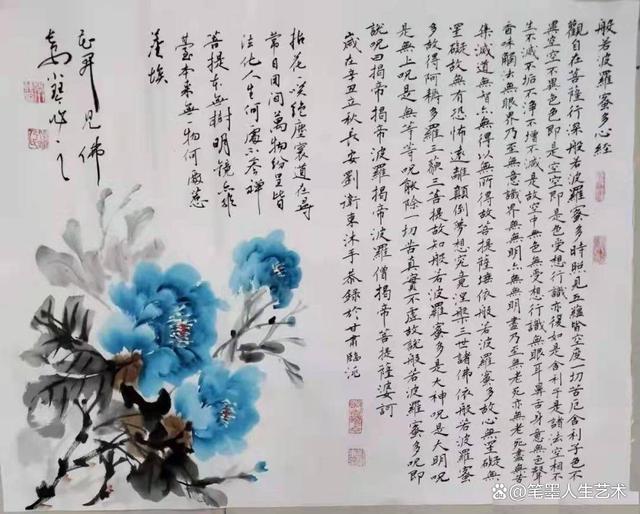 般若波羅蜜多心經
觀自在菩薩行深般若波羅蜜多時照見五蘊皆空度一切苦厄舍利子色不
異空空不異色色即是空空即是色受想行識亦復如是舍利子是諸法空相不
生不滅不垢不淨不增不減是故空中無色無受想行識無眼耳鼻舌身意無色聲
香味觸法無眼界乃至無意識界無無明亦無無明盡乃至無老死亦無老死盡無苦
集滅道無智亦無得以無所得故菩提薩埵依般若波羅蜜多故心無罣礙無
罣礙故無有恐怖遠離顛倒夢想究竟涅槃三世諸佛依般若波羅蜜
多故得阿耨多羅三藐三菩提故知般若波羅蜜多是大神呪是大明呪
是無上呪是無等等呪能除一切苦真實不虛故說般若波羅蜜多呪即
說呪曰揭帝揭帝波羅揭帝波羅僧揭帝菩提薩婆訶
歲在辛丑立秋長安劉衛東沐手恭錄於甘肅臨洮
拈花一笑絕塵寰道在尋
常日用間萬物紛呈皆
法化人生何處不參禪
菩提本無樹明鏡亦非
臺本來無一物何處惹
塵埃
花開見佛
笔墨人生艺术